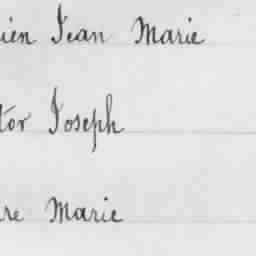 ien Jean Marie
tor Joseph
re Marie